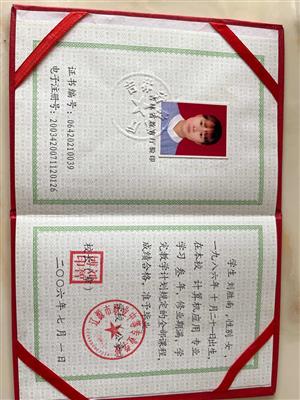 证书编号：06420210039
电子注册号：2003420071120126
学生 刘胜南，性别 女，
一九八六年 十月 二十一日出生，
在本校 计算机应用 专业
学习 叁 年，修业期满，学
完教学计划规定的全部课程，
成绩合格，准予毕业。
二〇〇六年 七月 一日